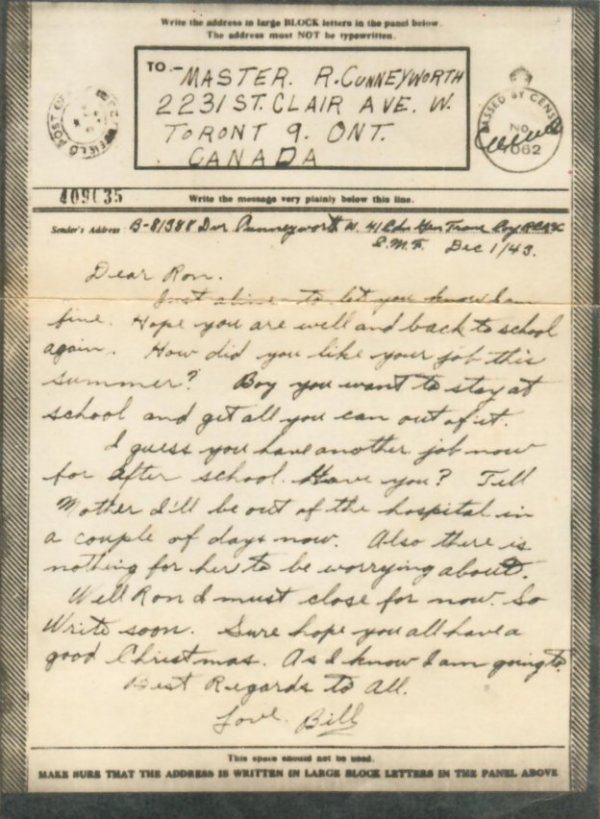 Write the address in large BLOCK letters in the panel below.
The address must NOT be typewritten.
TO.-
MASTER. R. CUNNEYWORTH
2231 ST. CLAIR AVE. W.
TORONT 9. ONT.
CANADA
FIELD POST
PASSED BY CENS
No.
4062
409035
Write the message very plainly below this line.
Sender's Address B-81988 Dvr Cunneyworth W. 41 Cdn Gen Trans Coy RCASC
C.M.F. Dec 1/43.
Dear Ron.
Just a line to let you know I am
fine. Hope you are well and back to school
again. How did you like your job this
summer? Boy you want to stay at
school and get all you can out of it.
I guess you have another job now
for after school. Have you? Tell
Mother I'll be out of the hospital in
a couple of days now. Also there is
nothing for her to be worrying about.
Well Ron I must close for now. So
Write soon. Sure hope you all have a
good Christmas. As I know I am going to.
Best Regards to All.
Love Bill
This space should not be used.
MAKE SURE THAT THE ADDRESS IS WRITTEN IN LARGE BLOCK LETTERS IN THE PANEL ABOVE